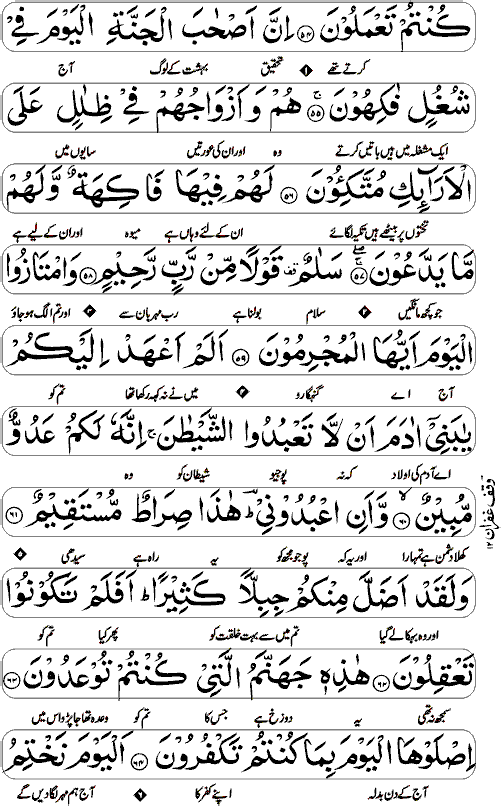 كُنْتُمْ تَعْمَلُوْنَ ﴿۵۴﴾ اِنَّ اَصْحٰبَ الْجَنَّةِ الْيَوْمَ فِيْ
کرتے تھے ۱ تحقیق بہشت کے لوگ آج
شُغُلٍ فٰكِهُوْنَ ﴿۵۵﴾ هُمْ وَاَزْوَاجُهُمْ فِيْ ظِلٰلٍ عَلَى
ایک مشغلہ میں ہیں باتیں کرتے وہ اور ان کی عورتیں سایوں میں
الْاَرَآئِكِ مُتَّكِـُٔوْنَ ﴿۵۶﴾ لَهُمْ فِيْهَا فَاكِهَةٌ وَّلَهُمْ
تختوں پر بیٹھے ہیں تکیہ لگائے ان کے لئے وہاں ہے میوہ اور ان کے لیے ہے
مَّا يَدَّعُوْنَ ﴿۵۷﴾ سَلٰمٌ قَوْلًا مِّنْ رَّبٍّ رَّحِيْمٍ ﴿۵۸﴾ وَامْتَازُوا
جو کچھ مانگیں ۲ سلام بولنا ہے رب مہربان سے ۳ اور تم الگ ہو جاؤ
الْيَوْمَ اَيُّهَا الْمُجْرِمُوْنَ ﴿۵۹﴾ اَلَمْ اَعْهَدْ اِلَيْكُمْ
آج اے گنہگارو ۴ میں نے نہ کہہ رکھا تھا تم کو
يٰبَنِيْٓ اٰدَمَ اَنْ لَّا تَعْبُدُوا الشَّيْطٰنَ اِنَّهٗ لَكُمْ عَدُوٌّ
اے آدم کی اولاد کہ نہ پوجیو شیطان کو وہ
مُّبِيْنٌ ﴿۶۰﴾ وَّاَنِ اعْبُدُوْنِيْ هٰذَا صِرَاطٌ مُّسْتَقِيْمٌ ﴿۶۱﴾
وقف غفران ۱۲
کھلا دشمن ہے تمہارا اور یہ کہ پوجو مجھ کو یہ راہ ہے سیدھی ۵
وَلَقَدْ اَضَلَّ مِنْكُمْ جِبِلًّا كَثِيْرًا ؕ اَفَلَمْ تَكُوْنُوْا
اور وہ بہکا لے گیا تم میں سے بہت خلقت کو پھر کیا تم کو
تَعْقِلُوْنَ ﴿۶۲﴾ هٰذِهٖ جَهَنَّمُ الَّتِيْ كُنْتُمْ تُوْعَدُوْنَ ﴿۶۳﴾
سمجھ نہ تھی یہ دوزخ ہے جس کا تم کو وعدہ تھا جا پڑو اس میں
اِصْلَوْهَا الْيَوْمَ بِمَا كُنْتُمْ تَكْفُرُوْنَ ﴿۶۴﴾ اَلْيَوْمَ نَخْتِمُ
آج کے دن بدلہ اپنے کفر کا ۶ آج ہم مہر لگا دیں گے